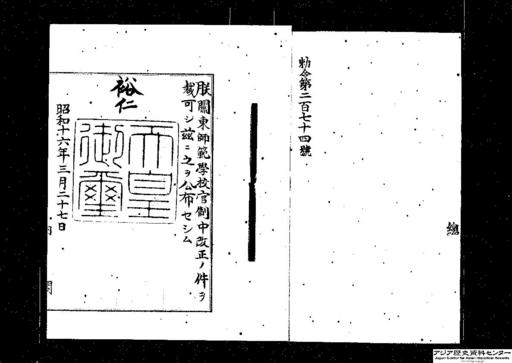 勅令第二百七十四號
朕關東師範學校官制中改正ノ件ヲ
裁可シ茲ニ之ヲ公布セシム
裕仁
天皇
御璽
昭和十六年三月二十七日
内閣
アジア歴史資料センター
Japan Center for Asian Historical Records